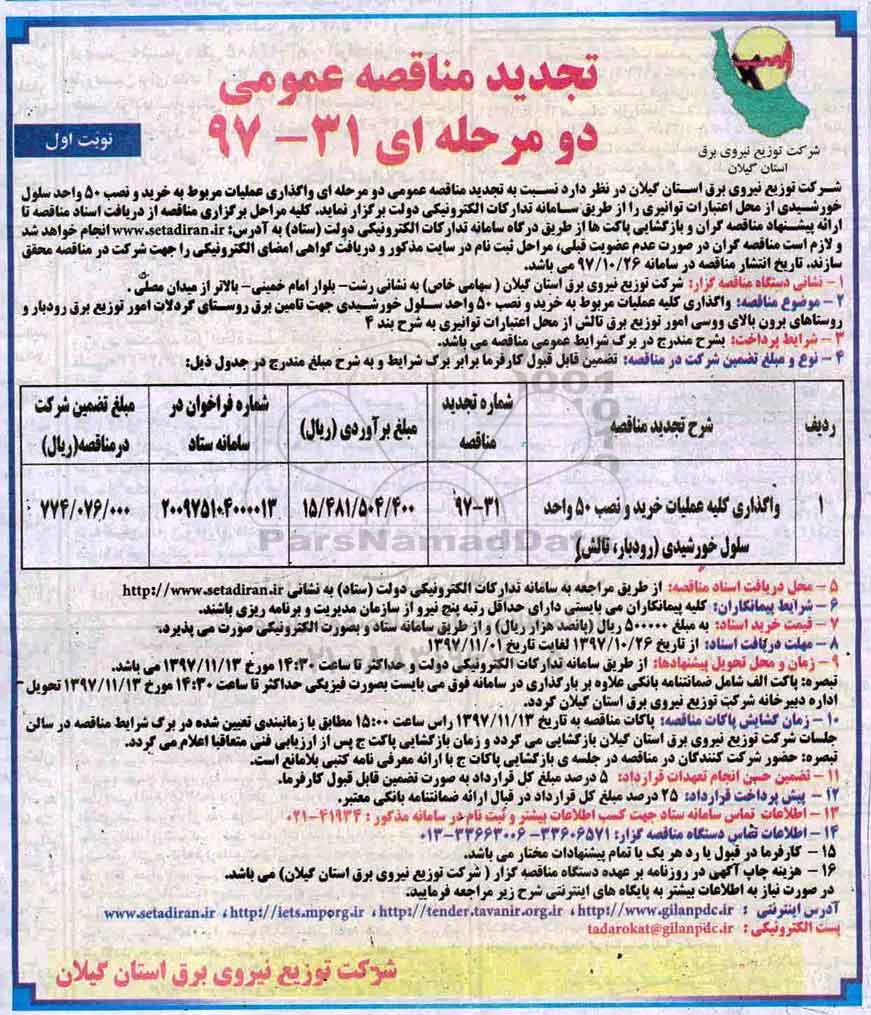 شرکت توزیع نیروی برق
استان گیلان
تجدید مناقصه عمومی
دو مرحله ای ۳۱- ۹۷
نوبت اول
شرکت توزیع نیروی برق استان گیلان در نظر دارد نسبت به تجدید مناقصه عمومی دو مرحله ای واگذاری عملیات مربوط به خرید و نصب ۵۰ واحد سلول
خورشیدی از محل اعتبارات توانیری را از طریق سامانه تدارکات الکترونیکی دولت برگزار نماید. کلیه مراحل برگزاری مناقصه از دریافت اسناد مناقصه تا
ارائه پیشنهاد مناقصه گران و بازگشایی پاکت ها از طریق درگاه سامانه تدارکات الکترونیکی دولت (ستاد) به آدرس: www.setadiran.ir انجام خواهد شد
و لازم است مناقصه گران در صورت عدم عضویت قبلی، مراحل ثبت نام در سایت مذکور و دریافت گواهی امضای الکترونیکی را جهت شرکت در مناقصه محقق
سازند. تاریخ انتشار مناقصه در سامانه ۹۷/۱۰/۲۶ می باشد.
۱- نشانی دستگاه مناقصه گزار: شرکت توزیع نیروی برق استان گیلان ( سهامی خاص) به نشانی رشت- بلوار امام خمینی- بالاتر از میدان مصلّی .
۲- موضوع مناقصه: واگذاری کلیه عملیات مربوط به خرید و نصب ۵۰ واحد سلول خورشیدی جهت تامین برق روستای گردلات امور توزیع برق رودبار و
روستاهای برون بالای ووسی امور توزیع برق تالش از محل اعتبارات توانیری به شرح بند ۴
۳- شرایط پرداخت: بشرح مندرج در برگ شرایط عمومی مناقصه می باشد.
۴- نوع و مبلغ تضمین شرکت در مناقصه: تضمین قابل قبول کارفرما برابر برگ شرایط و به شرح مبلغ مندرج در جدول ذیل:
ردیف
شرح تجدید مناقصه
شماره تجدید
مناقصه
مبلغ برآوردی (ریال)
شماره فراخوان در
سامانه ستاد
مبلغ تضمین شرکت
درمناقصه(ریال)
۱
واگذاری کلیه عملیات خرید و نصب ۵۰ واحد
سلول خورشیدی (رودبار، تالش)
۹۷-۳۱
۱۵/۴۸۱/۵۰۴/۴۰۰
۲۰۰۹۷۵۱۰۴۰۰۰۰۱۳
۷۷۴/۰۷۶/۰۰۰
ParsNamadData
۵- محل دریافت اسناد مناقصه: از طریق مراجعه به سامانه تدارکات الکترونیکی دولت (ستاد) به نشانی http://www.setadiran.ir
۶- شرایط پیمانکاران: کلیه پیمانکاران می بایستی دارای حداقل رتبه پنج نیرو از سازمان مدیریت و برنامه ریزی باشند.
۷- قیمت خرید اسناد: به مبلغ ۵۰۰۰۰۰ ریال (پانصد هزار ریال) و از طریق سامانه ستاد و بصورت الکترونیکی صورت می پذیرد.
۸- مهلت دریافت اسناد: از تاریخ ۱۳۹۷/۱۰/۲۶ لغایت تاریخ ۱۳۹۷/۱۱/۰۱
۹- زمان و محل تحویل پیشنهادها: از طریق سامانه تدارکات الکترونیکی دولت و حداکثر تا ساعت ۱۴:۳۰ مورخ ۱۳۹۷/۱۱/۱۳ می باشد.
تبصره: پاکت الف شامل ضمانتنامه بانکی علاوه بر بارگذاری در سامانه فوق می بایست بصورت فیزیکی حداکثر تا ساعت ۱۴:۳۰ مورخ ۱۳۹۷/۱۱/۱۳ تحویل
اداره دبیرخانه شرکت توزیع نیروی برق استان گیلان گردد.
۱۰- زمان گشایش پاکات مناقصه: پاکات مناقصه به تاریخ ۱۳۹۷/۱۱/۱۳ راس ساعت ۱۵:۰۰ مطابق با زمانبندی تعیین شده در برگ شرایط مناقصه در سالن
جلسات شرکت توزیع نیروی برق استان گیلان بازگشایی می گردد و زمان بازگشایی پاکت ج پس از ارزیابی فنی متعاقبا اعلام می گردد.
تبصره: حضور شرکت کنندگان در مناقصه در جلسه ی بازگشایی پاکات ج با ارائه معرفی نامه کتبی بلامانع است.
۱۱- تضمین حسن انجام تعهدات قرارداد: ۵ درصد مبلغ کل قرارداد به صورت تضمین قابل قبول کارفرما.
۱۲- پیش پرداخت قرارداد: ۲۵ درصد مبلغ کل قرارداد در قبال ارائه ضمانتنامه بانکی معتبر.
۱۳- اطلاعات تماس سامانه ستاد جهت کسب اطلاعات بیشتر و ثبت نام در سامانه مذکور : ۴۱۹۳۴-۰۲۱
۱۴- اطلاعات تماس دستگاه مناقصه گزار: ۳۳۶۰۶۵۷۱- ۳۳۶۶۳۰۰۶-۰۱۳
۱۵- کارفرما در قبول یا رد هر یک یا تمام پیشنهادات مختار می باشد.
۱۶- هزینه چاپ آگهی در روزنامه بر عهده دستگاه مناقصه گزار ( شرکت توزیع نیروی برق استان گیلان) می باشد.
در صورت نیاز به اطلاعات بیشتر به پایگاه های اینترنتی شرح زیر مراجعه فرمایید.
آدرس اینترنتی : http://www.gilanpdc.ir ، http://tender.tavanir.org.ir ، http://iets.mporg.ir ، www.setadiran.ir
پست الکترونیکی: tadarokat@gilanpdc.ir
شرکت توزیع نیروی برق استان گیلان